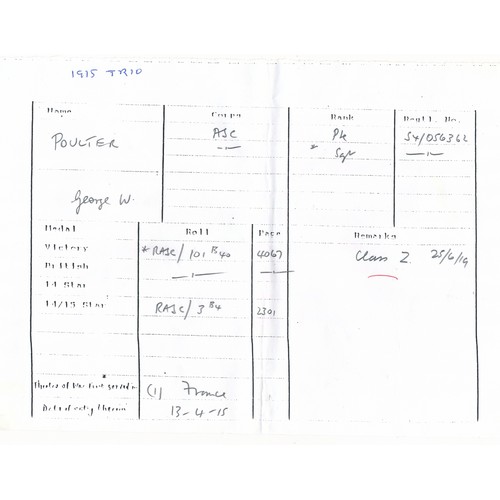 1915 TRIO
Name Corps Rank Regtl. No.
POULTER ASC Pte S4/056362
—"— * Sgt —"—
George W.
Medal Roll Page Remarks
Victory * RASC/101 B40 4067 Class Z 25/6/19
British —"— —"—
14 Star
14/15 Star RASC/3 B4 2301
Theatre of War first served in (1) France
Date of entry therein 13-4-15